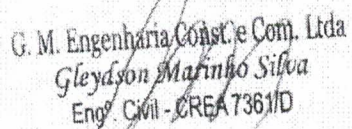 G. M. Engenharia Const. e Com. Ltda
Gleydson Marinho Silva
Engº. Civil - CREA 7361/D